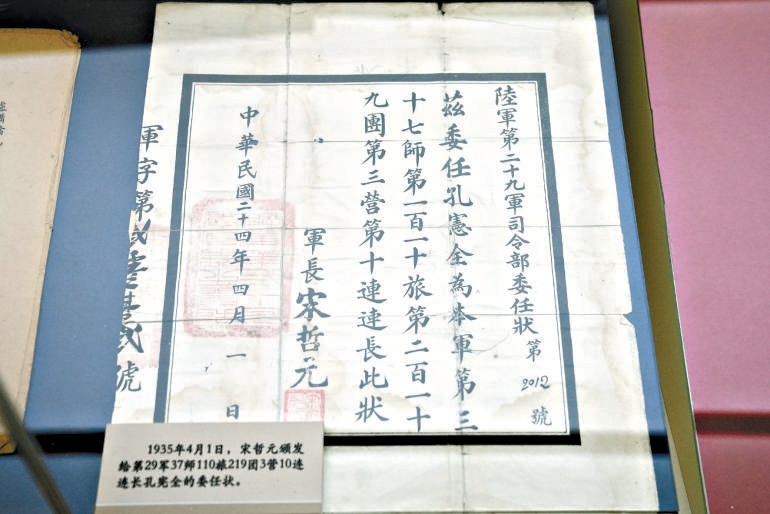 陸軍第二十九軍司令部委任狀第2012號
茲委任孔憲全為本軍第三
十七師第一百一十旅第二百一十
九團第三營第十連連長此狀
軍長宋哲元
中華民國二十四年四月一日
軍字第貳零壹貳號
1935年4月1日，宋哲元颁发
给第29军37师110旅219团3营10连
连长孔宪全的委任状。